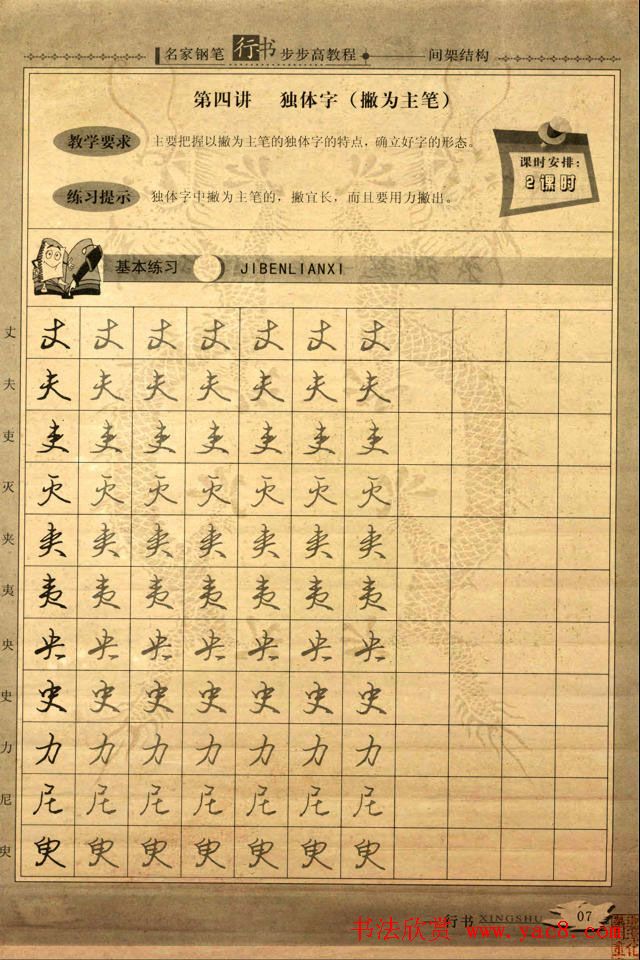 名家钢笔 行书 步步高教程 间架结构
第四讲 独体字（撇为主笔）
教学要求 主要把握以撇为主笔的独体字的特点，确立好字的形态。
练习提示 独体字中撇为主笔的，撇宜长，而且要用力撇出。
课时安排：
2课时
基本练习 JIBENLIANXI
丈 丈 丈 丈 丈 丈 丈 丈
夫 夫 夫 夫 夫 夫 夫 夫
吏 吏 吏 吏 吏 吏 吏 吏
灭 灭 灭 灭 灭 灭 灭 灭
夹 夹 夹 夹 夹 夹 夹 夹
夷 夷 夷 夷 夷 夷 夷 夷
央 央 央 央 央 央 央 央
史 史 史 史 史 史 史 史
力 力 力 力 力 力 力 力
尼 尼 尼 尼 尼 尼 尼 尼
臾 臾 臾 臾 臾 臾 臾 臾
行书 XINGSHU 07
书法欣赏 www.yac8.com